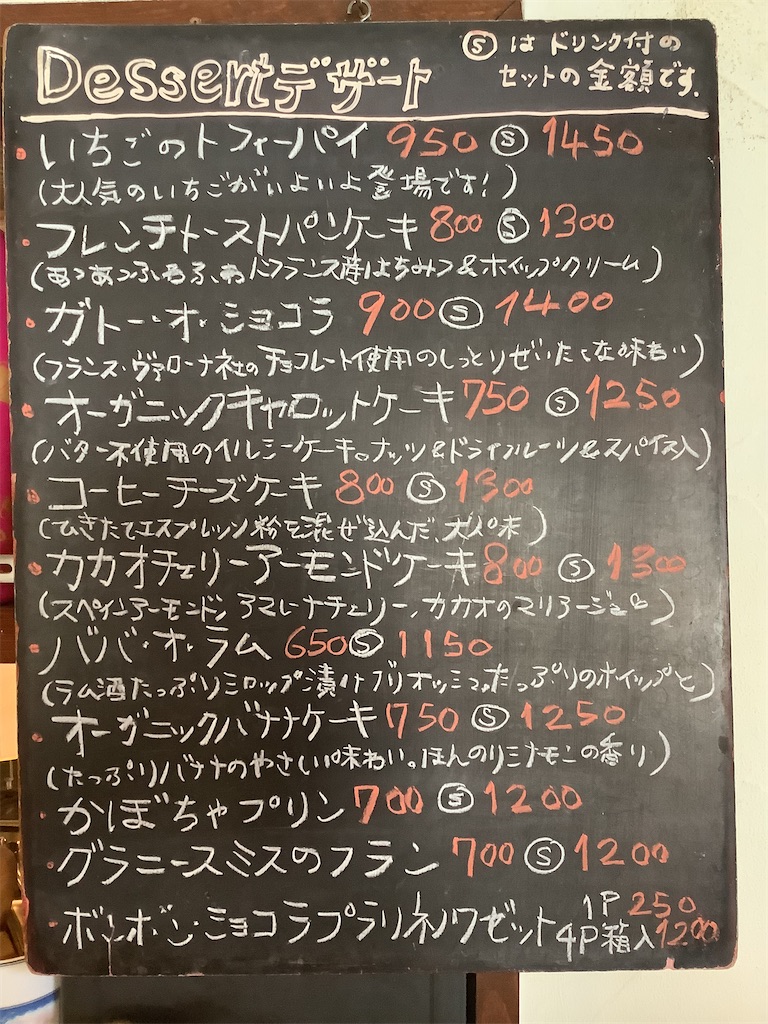 Dessertデザート
Ⓢはドリンク付の
セットの金額です.
いちごのトフィーパイ 950 Ⓢ 1450
(大人気のいちごがいよいよ登場です!)
フレンチトーストパンケーキ 800 Ⓢ 1300
(あつあつふわふわにフランス産はちみつ&ホイップクリーム)
ガトー・オ・ショコラ 900 Ⓢ 1400
(フランス・ヴァローナ社のチョコレート使用のしっとりぜいたくな味わい)
オーガニックキャロットケーキ 750 Ⓢ 1250
(バター不使用のヘルシーケーキ。ナッツ&ドライフルーツ&スパイス入)
コーヒーチーズケーキ 800 Ⓢ 1300
(ひきたてエスプレッソ粉を混ぜ込んだ、大人味)
カカオチェリーアーモンドケーキ 800 Ⓢ 1300
(スペインアーモンド、アマレーナチェリー、カカオのマリアージュ)
ババ・オ・ラム 650 Ⓢ 1150
(ラム酒たっぷりシロップ漬けブリオッシュ。たっぷりのホイップと)
オーガニックバナナケーキ 750 Ⓢ 1250
(たっぷりバナナのやさしい味わい。ほんのりシナモンの香り)
かぼちゃプリン 700 Ⓢ 1200
グラニースミスのフラン 700 Ⓢ 1200
ボンボン・ショコラプラリネノワゼット 1P 250
4P箱入 1200